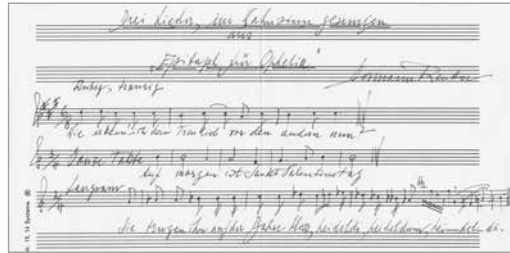 Drei Lieder, im Wahnsinn gesungen
aus
"Epitaph für Ophelia"
Hermann Reutter
Ruhig, traurig
Wie erkenn' ich dein Treulieb vor den andern nun?
Ganze Takte
Auf morgen ist Sankt Valentinstag
Langsam
Sie trugen ihn auf der Bahre bloss, heidelde, heideldum, heimedelde.
Nr. 11, 14 Systeme